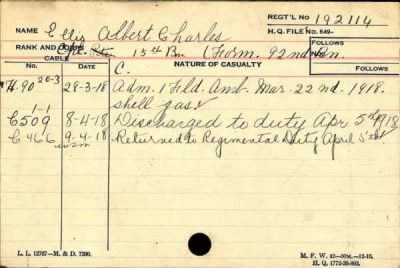 REGT'L NO 192114
NAME Ellis Albert Charles
H.Q. FILE NO. 649-
RANK AND CORPS Pte. 15th Bn (Form. 92nd Bn.
FOLLOWS
CABLE
NO. DATE NATURE OF CASUALTY FOLLOWS
C.
H.90 20-3 28-3-18 Adm. 1 Fld. Amb. Mar. 22nd. 1918.
1-1 shell gas.
C509 8-4-18 Discharged to duty Apr 5th 1918
C466 9-4-18 Returned to Regimental Duty April 5th
L. L. 12767—M. & D. 7290.
M. F. W. 12—50M.—12-16.
H. Q. 1772-39-893.